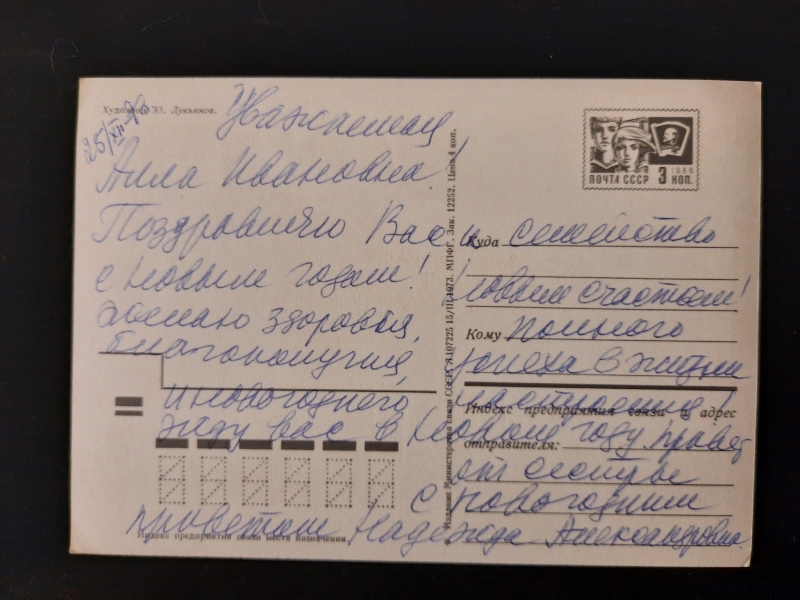 Художник Ю. Лукьянов.
25/XII-73
Уважаемая
Алла Ивановна!
Поздравляю Вас и семейство
с новым годом! новым счастьем!
желаю здоровья, полного
благополучия, успеха в жизни
и новогоднего настроения!
жду вас в Новом году, привет
от сестры
с новогодним
приветом Надежда Александровна.
ПОЧТА СССР 3 КОП.
1966
Куда
Кому
Индекс предприятия связи и адрес
отправителя:
Индекс предприятия связи места назначения
Издание Министерства связи СССР. 15/III-1973. МПФГ. Зак. 12252. Цена 4 коп.